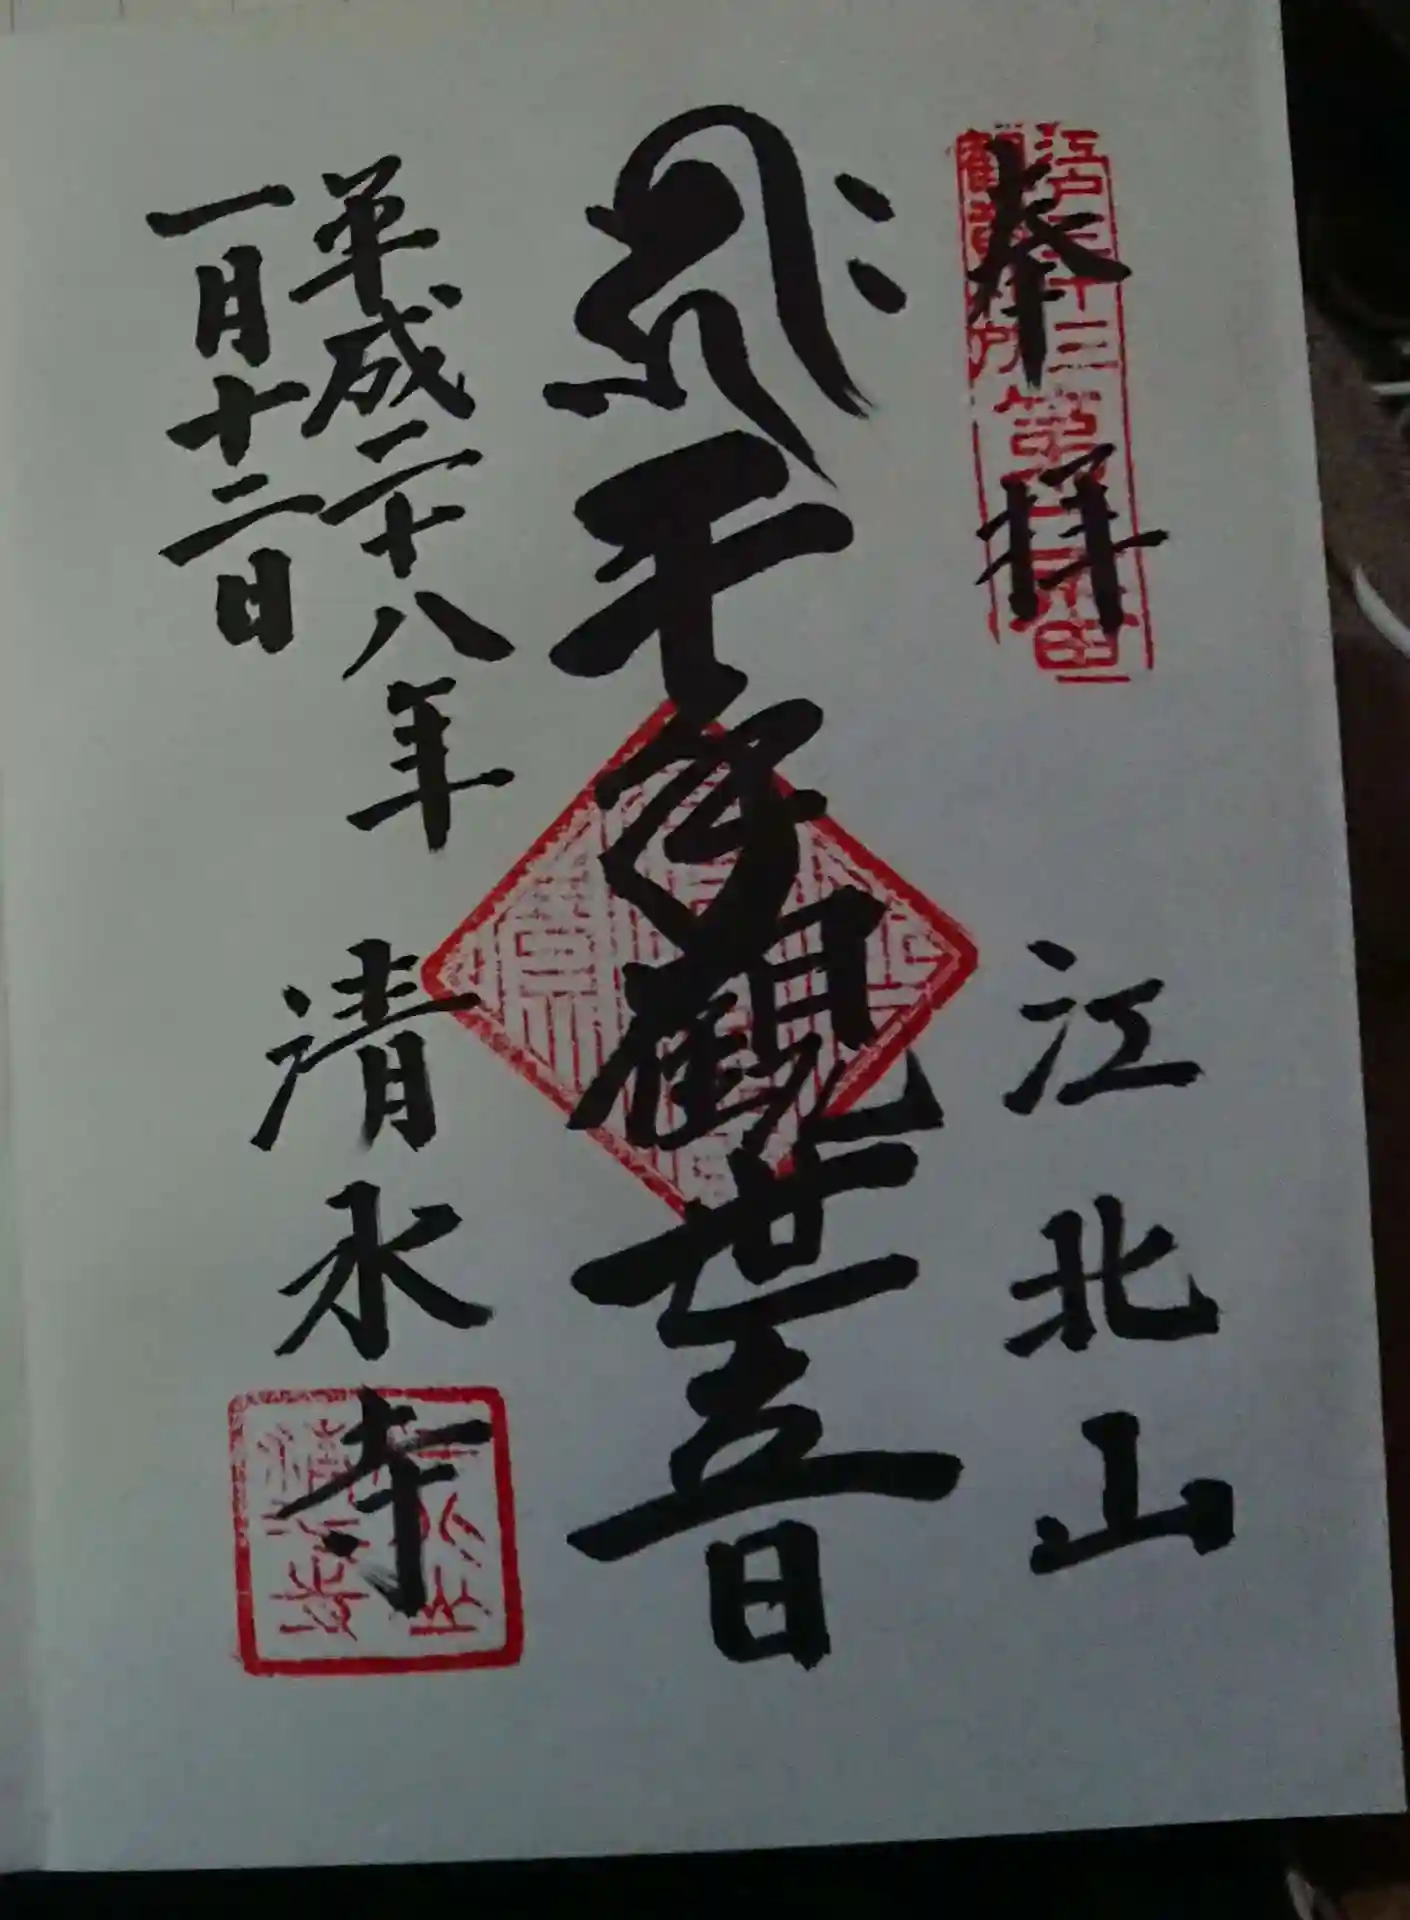 奉拝
江戸三十三
観音札所第二番
江北山
千手観世音
平成二十八年
一月十二日
清水寺